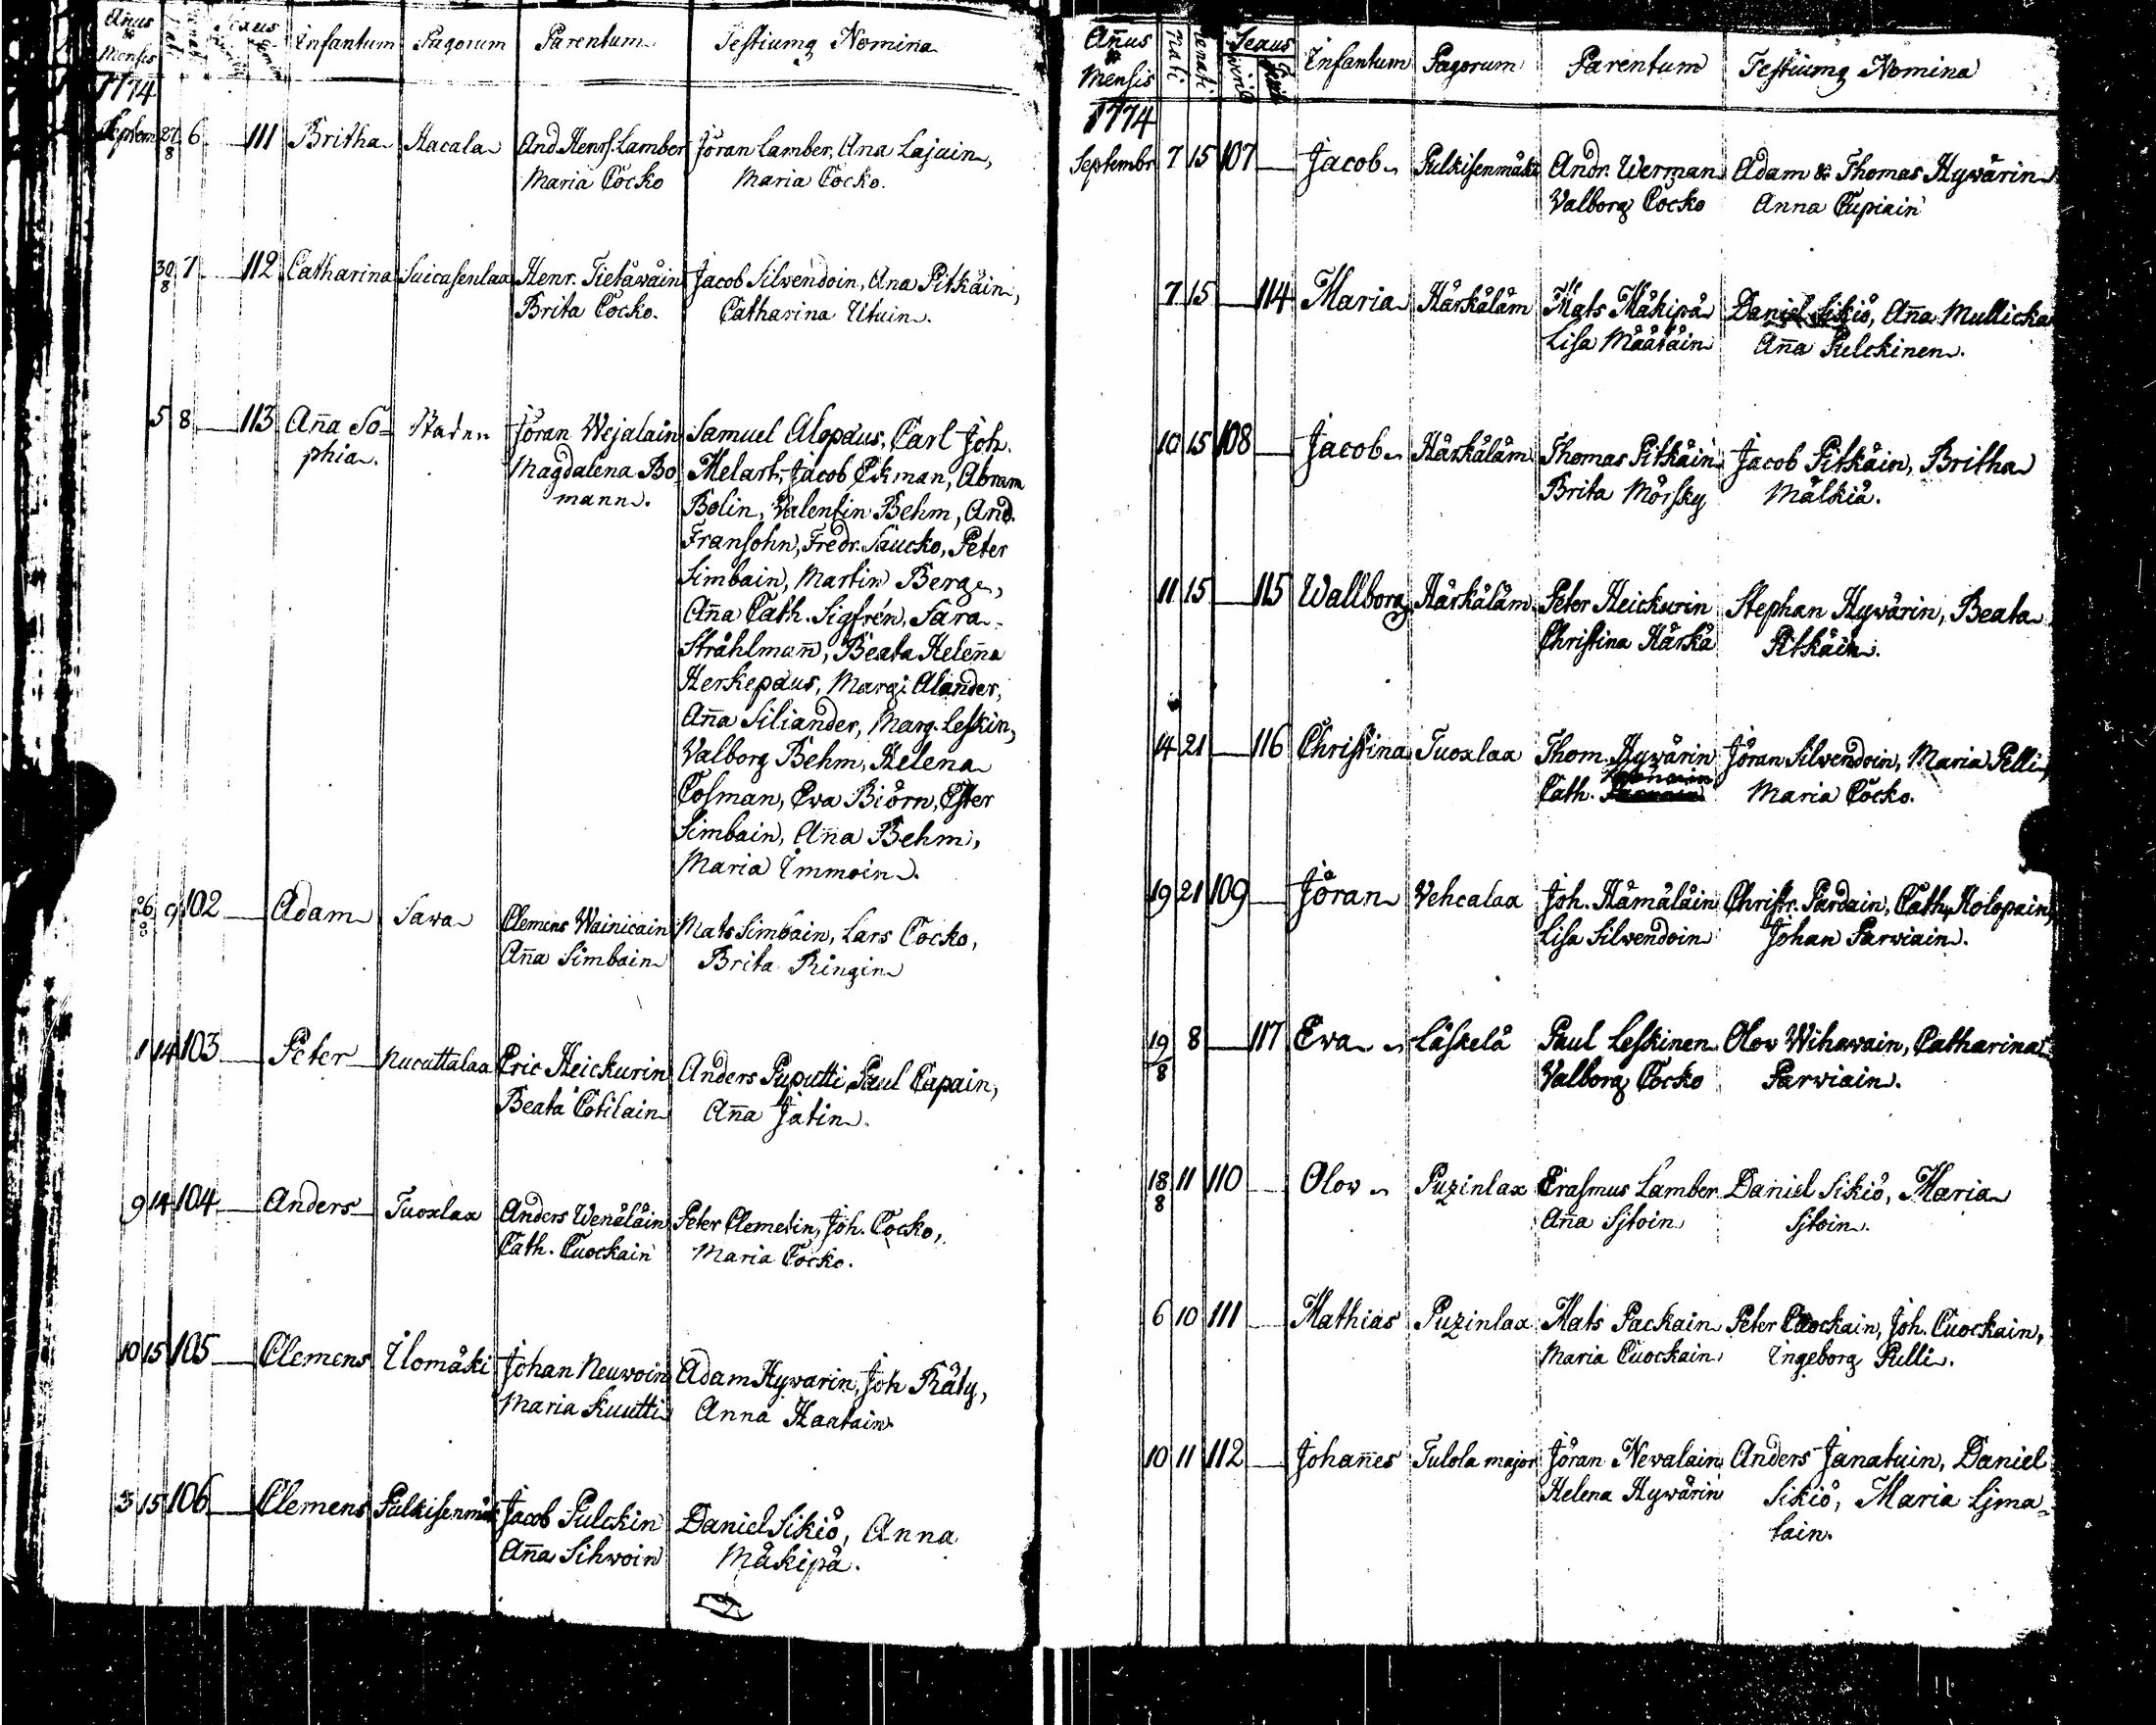 Añus & Mensis Nati Renati Sexus Infantum Pagorum Parentum Testiumq Nomina
1774
Septem 27/8 6 — 111 Britha Hacala And Henrs. Lamber Jöran Lamber, Ana Lajuin,
Maria Cocko Maria Cocko.
30/8 7 — 112 Catharina Suicasenlax Henr. Tietäwäin Jacob Silvendoin, Ana Pitkäin,
Brita Cocko. Catharina Utuin.
5 8 — 113 Aña So= Staden Jöran Wejalain Samuel Alopæus, Carl Joh.
phia. Magdalena Bo Melart, Jacob Ekman, Abram
mann. Bolin, Valentin Behm, And.
Fransohn, Fredr. Saucko, Peter
Simbain, Martin Berg,
Aña Cath. Sigfrén, Sara
Stråhlmañ, Beata Heleña
Herkepæus, Marg: Alander,
Aña Siliander, Marg. Leskin,
Valborg Behm, Helena
Cosman, Eva Biörn, Ester
Simbain, Aña Behm,
Maria Immoin.
26/8 9 102 — Adam Sawa Clemens Wainicain Mats Simbain, Lars Cocko,
Aña Simbain Brita Ringin
1 14 103 — Peter Nucuttalax Eric Heickurin Anders Puputti Paul Capain,
Beata Cotilain Aña Jatin.
9 14 104 — Anders Tuoxlax Anders Wenäläin Peter Clemetin, Joh. Cocko,
Cath. Cuockain Maria Cocko.
10 15 105 — Clemens Ilomäki Johan Neuwoin Adam Hywarin, Joh Räty,
Maria Kuutti Anna Haatain.
3 15 106 — Clemens Pulkisenmäk Jacob Pulckin Daniel Sikiö, Anna
Aña Sihvoin Mäkipä.
Añus & Mensis Nati Renati Sexus Viril Infantum Pagorum Parentum Testiumq Nomina
1774
Septembr 7 15 107 — Jacob Pulkisenmäki Andr. Werman Adam & Thomas Hywärin
Valborg Cocko Anna Cupiain
7 15 — 114 Maria Härkäläm Mats Mäkipä Daniel Sikiö, Aña Mullicka
Lisa Määtäin Aña Pulckinen.
10 15 108 — Jacob Härkäläm Thomas Pitkäin Jacob Pitkäin, Britha
Brita Mörsky Mälkiä.
11 15 — 115 Wallborg Härkäläm Peter Heickurin Stephan Hywärin, Beata
Christina Härkä Pitkäin.
14 21 — 116 Christina Tuoxlax Thom. Hywärin Jöran Silvendoin, Maria Pelli,
Cath. Maria Cocko.
19 21 109 — Jöran Vehcalax Joh. Hämäläin Christr. Pardain, Cath. Holopain,
Lisa Silvendoin Johan Parviain.
19/8 8 — 117 Ewa Läskelä Paul Leskinen Olov Wihawain, Catharina
Valborg Cocko Parviain.
18/8 11 110 — Olov Puzinlax Erasmus Lamber Daniel Sikiö, Maria
Aña Sitoin Sitoin.
6 10 111 — Mathias Puzinlax Mats Packain Peter Cuockain, Joh. Cuockain,
Maria Cuockain Ingeborg Pelli.
10 11 112 — Johañes Tulola major Jöran Nevalain Anders Janatuin, Daniel
Helena Hywärin Sikiö, Maria Ljma=
tain.